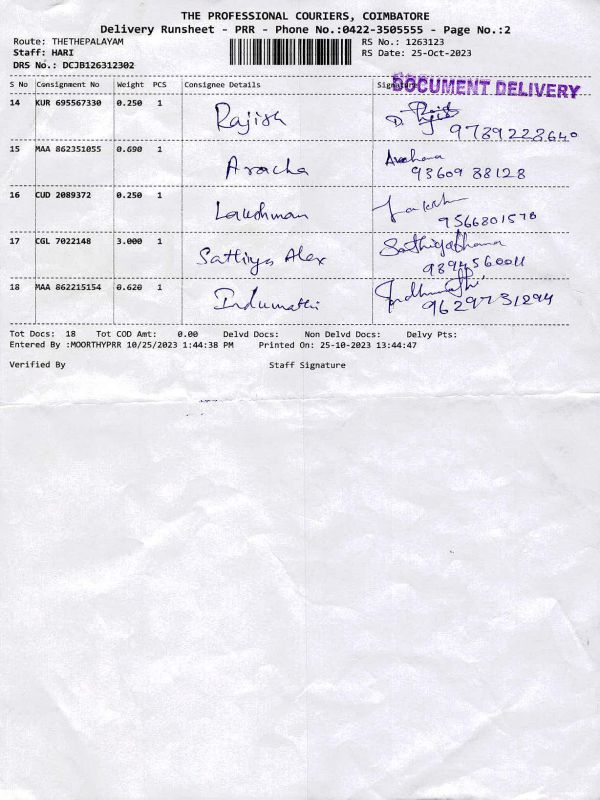 THE PROFESSIONAL COURIERS, COIMBATORE
Delivery Runsheet - PRR - Phone No.:0422-3505555 - Page No.:2
Route: THETHEPALAYAM RS No.: 1263123
Staff: HARI RS Date: 25-Oct-2023
DRS No.: DCJB126312302
S No Consignment No Weight PCS Consignee Details Signature
DOCUMENT DELIVERY
14 KUR 695567330 0.250 1 Rajish
9789228640
15 MAA 862351055 0.690 1 Aracha
93609 38128
16 CUD 2089372 0.250 1 Lakshman
9566801570
17 CGL 7022148 3.000 1 Sathiya Alex
9894560011
18 MAA 862215154 0.620 1 Indumathi
9629731294
Tot Docs: 18 Tot COD Amt: 0.00 Delvd Docs: Non Delvd Docs: Delvy Pts:
Entered By :MOORTHYPRR 10/25/2023 1:44:38 PM Printed On: 25-10-2023 13:44:47
Verified By Staff Signature